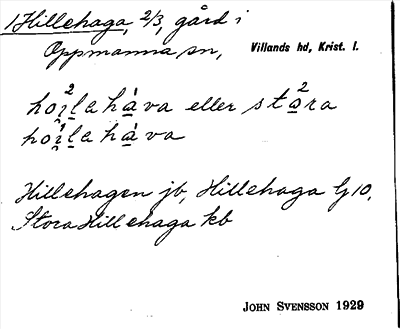 1 Hillehaga, 2/3, gård i
Oppmanna sn, Villands hd, Krist. l.
eller stora
Hillehagen jb, Hillehaga Gj 10,
Stora Hillehaga kb
JOHN SVENSSON 1929